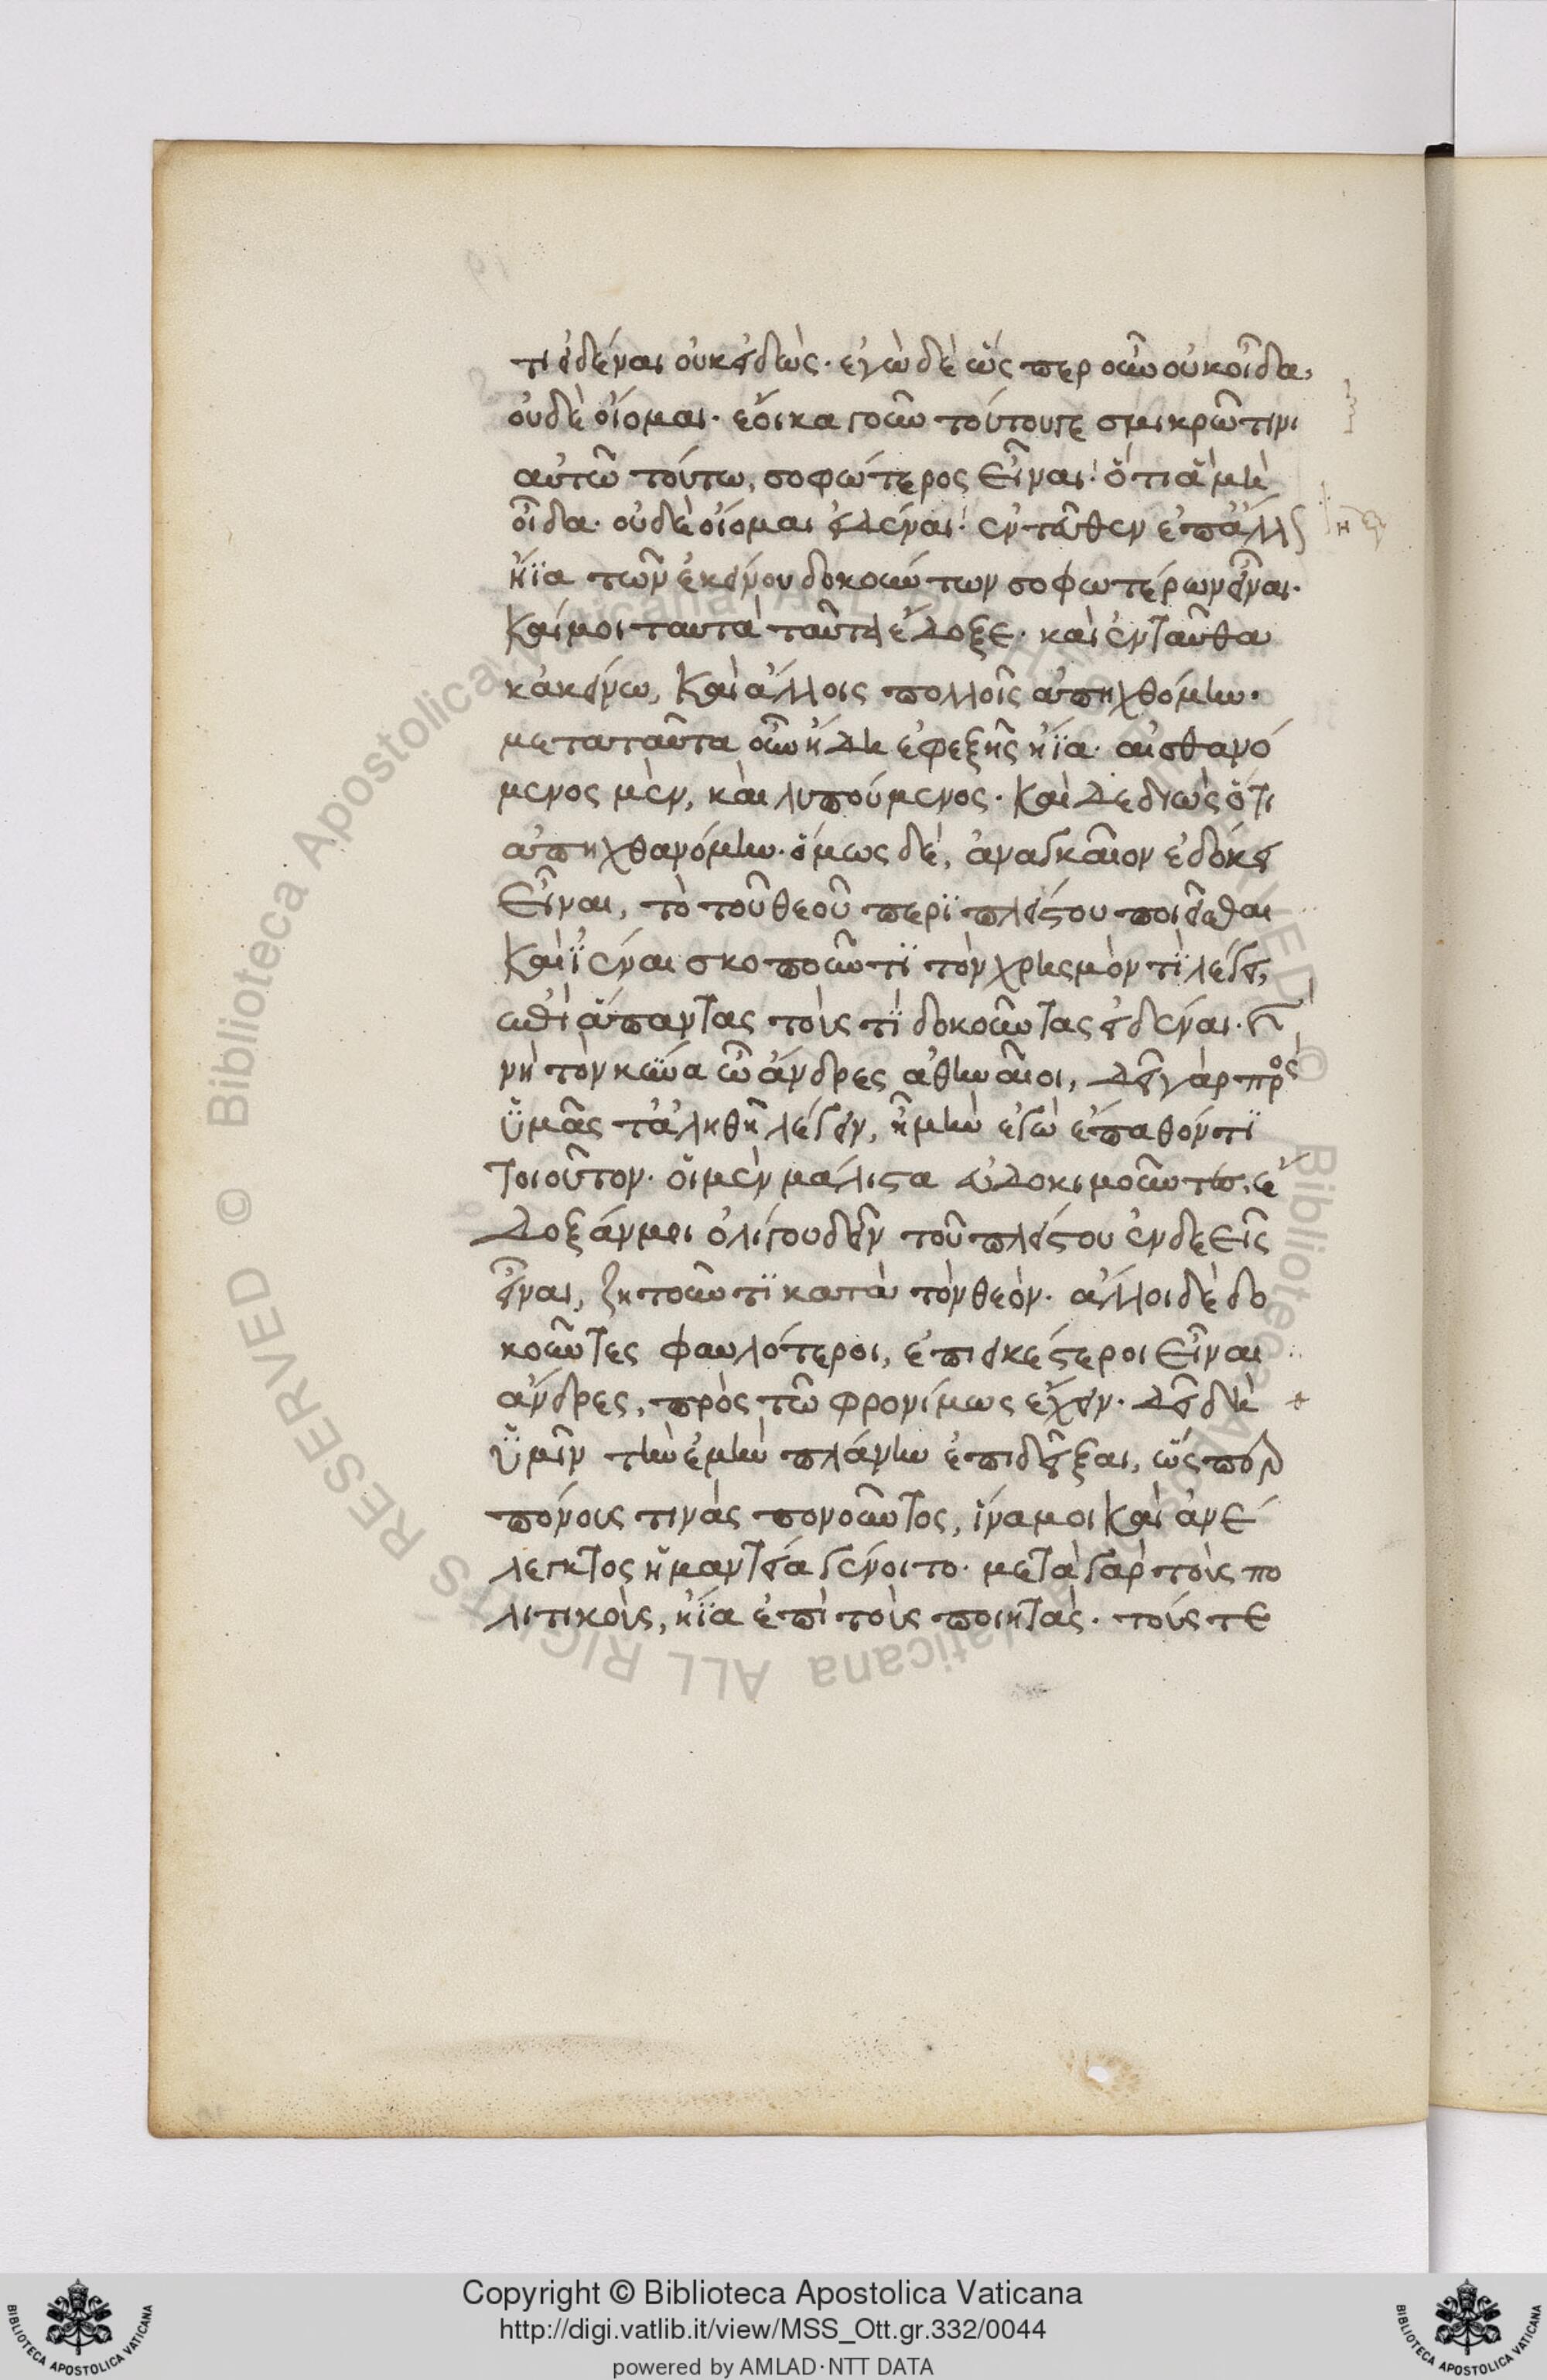 τι εἰδέναι οὐκ εἰδώς· ἐγὼ δὲ ὥς περ οὖν οὐκ οἶδα,
οὐδὲ οἴομαι· ἔοικα γοῦν τούτου γε σμικρῶ τινι
αὐτῶ τούτω, σοφώτερος εἶναι· ὅτι ἃ μὴ
οἶδα· οὐδὲ οἴομαι εἰδέναι· ἐντεῦθεν ἐπ' ἄλλον
ἤϊα τῶν ἐκείνου δοκούντων σοφωτέρων εἶναι·
καί μοι ταυτὰ ταῦτα ἔδοξε· καὶ ἐνταῦθα
κἀκείνω, καὶ ἄλλοις πολλοῖς ἀπηχθόμην·
μετὰ ταῦτα οὖν ἤδη ἐφεξῆς ἤϊα· αἰσθανό
μενος μὲν, καὶ λυπούμενος· καὶ δεδιὼς ὅτι
ἀπηχθανόμην· ὅμως δὲ, ἀναγκαῖον ἐδόκει
εἶναι, τὸ τοῦ θεοῦ περὶ πλείστου ποιεῖσθαι
καὶ ἰέναι σκοποῦντϊ τὸν χρησμὸν τί λέγει,
ἐπὶ ἅπαντας τοὺς τὶ δοκοῦντας εἰδέναι· καὶ
νὴ τὸν κύνα ὦ ἄνδρες ἀθηναῖοι, δεῖ γὰρ πρὸς
ὑμᾶς τἀληθῆ λέγειν, ἦ μὴν ἐγὼ ἔπαθόν τϊ
τοιοῦτον· οἱ μὲν μάλιστα εὐδοκιμοῦντες, ἔ
δοξάν μοι ὀλίγου δεῖν τοῦ πλείστου ἐνδεεῖς
εἶναι, ζητοῦντϊ κατὰ τὸν θεόν· ἄλλοι δὲ δο
κοῦντες φαυλότεροι, ἐπιεικέστεροι εἶναι
ἄνδρες, πρὸς τῶ φρονίμως ἔχειν· δεῖ δὴ
ὑμῖν τὴν ἐμὴν πλάνην ἐπιδεῖξαι, ὥσπερ
πόνους τινὰς πονοῦντος, ἵνα μοι καὶ ἀνέ
λεγκτος ἡ μαντεία γένοιτο· μετὰ γὰρ τοὺς πο
λιτικοὺς, ἤϊα ἐπὶ τοὺς ποιητὰς· τούς τε
Copyright © Biblioteca Apostolica Vaticana
http://digi.vatlib.it/view/MSS_Ott.gr.332/0044
powered by AMLAD·NTT DATA